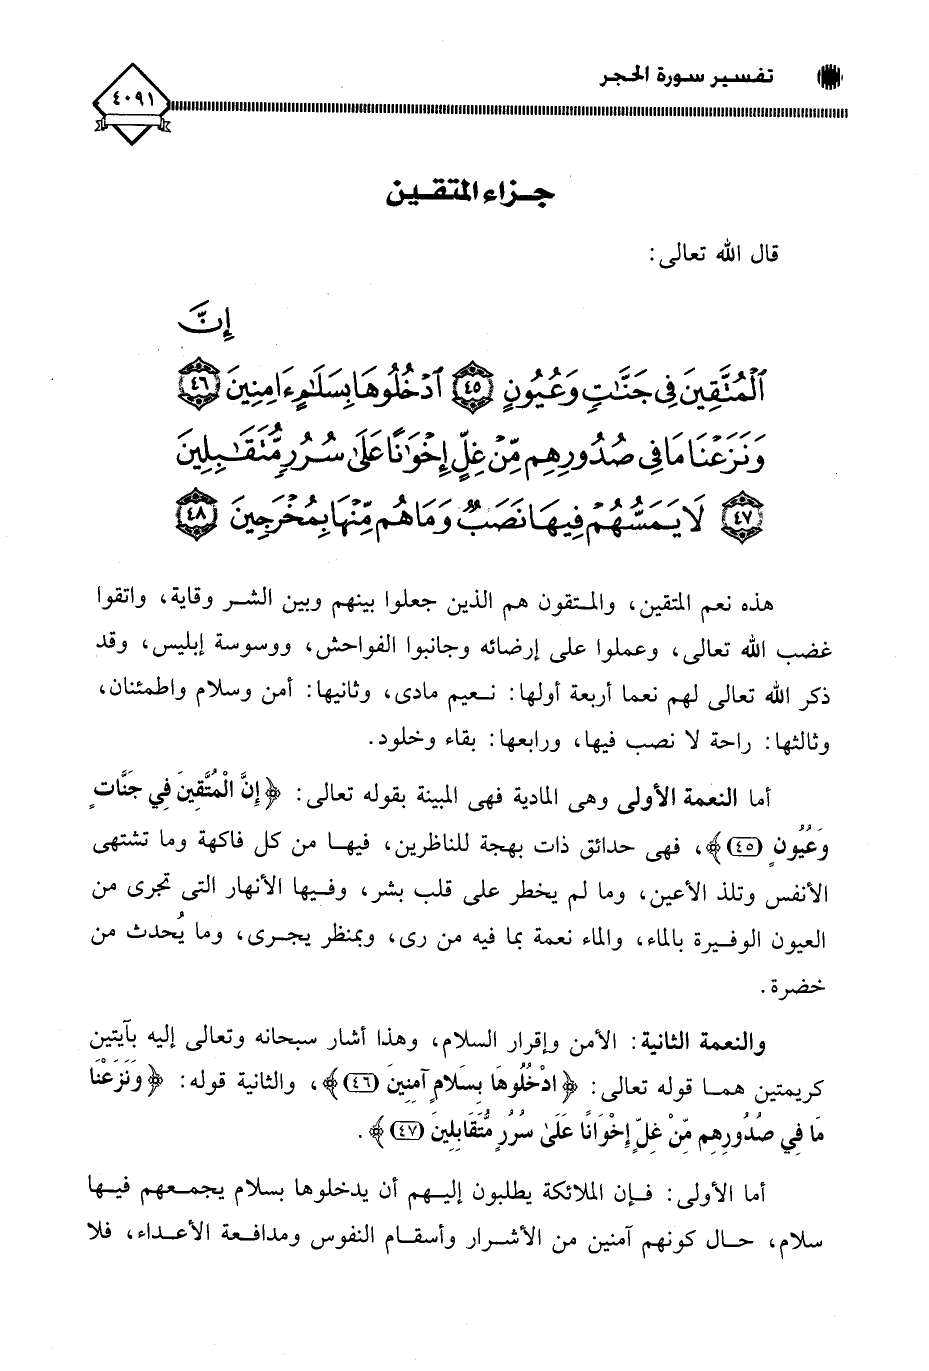 تفسير سورة الحجر
٤٠٩١
جزاء المتقين
قال الله تعالى:
إِنَّ
ٱلْمُتَّقِينَ فِى جَنَّٰتٍ وَعُيُونٍ ٤٥ ٱدْخُلُوهَا بِسَلَٰمٍ ءَامِنِينَ ٤٦
وَنَزَعْنَا مَا فِى صُدُورِهِم مِّنْ غِلٍّ إِخْوَٰنًا عَلَىٰ سُرُرٍ مُّتَقَٰبِلِينَ
٤٧ لَا يَمَسُّهُمْ فِيهَا نَصَبٌ وَمَا هُم مِّنْهَا بِمُخْرَجِينَ ٤٨
هذه نعم المتقين، والمتقون هم الذين جعلوا بينهم وبين الشر وقاية، واتقوا
غضب الله تعالى، وعملوا على إرضائه وجانبوا الفواحش، ووسوسة إبليس، وقد
ذكر الله تعالى لهم نعما أربعة أولها: نعيم مادى، وثانيها: أمن وسلام واطمئنان،
وثالثها: راحة لا نصب فيها، ورابعها: بقاء وخلود.
أما النعمة الأولى وهى المادية فهى المبينة بقوله تعالى: ﴿إِنَّ الْمُتَّقِينَ فِي جَنَّاتٍ
وَعُيُونٍ (٤٥)﴾، فهى حدائق ذات بهجة للناظرين، فيها من كل فاكهة وما تشتهى
الأنفس وتلذ الأعين، وما لم يخطر على قلب بشر، وفيها الأنهار التى تجرى من
العيون الوفيرة بالماء، والماء نعمة بما فيه من رى، وبمنظر يجرى، وما يُحدث من
خضرة.
والنعمة الثانية: الأمن وإقرار السلام، وهذا أشار سبحانه وتعالى إليه بآيتين
كريمتين هما قوله تعالى: ﴿ادْخُلُوهَا بِسَلامٍ آمِنِينَ (٤٦)﴾، والثانية قوله: ﴿وَنَزَعْنَا
مَا فِي صُدُورِهِم مِّنْ غِلٍّ إِخْوَانًا عَلَىٰ سُرُرٍ مُّتَقَابِلِينَ (٤٧)﴾.
أما الأولى: فإن الملائكة يطلبون إليهم أن يدخلوها بسلام يجمعهم فيها
سلام، حال كونهم آمنين من الأشرار وأسقام النفوس ومدافعة الأعداء، فلا